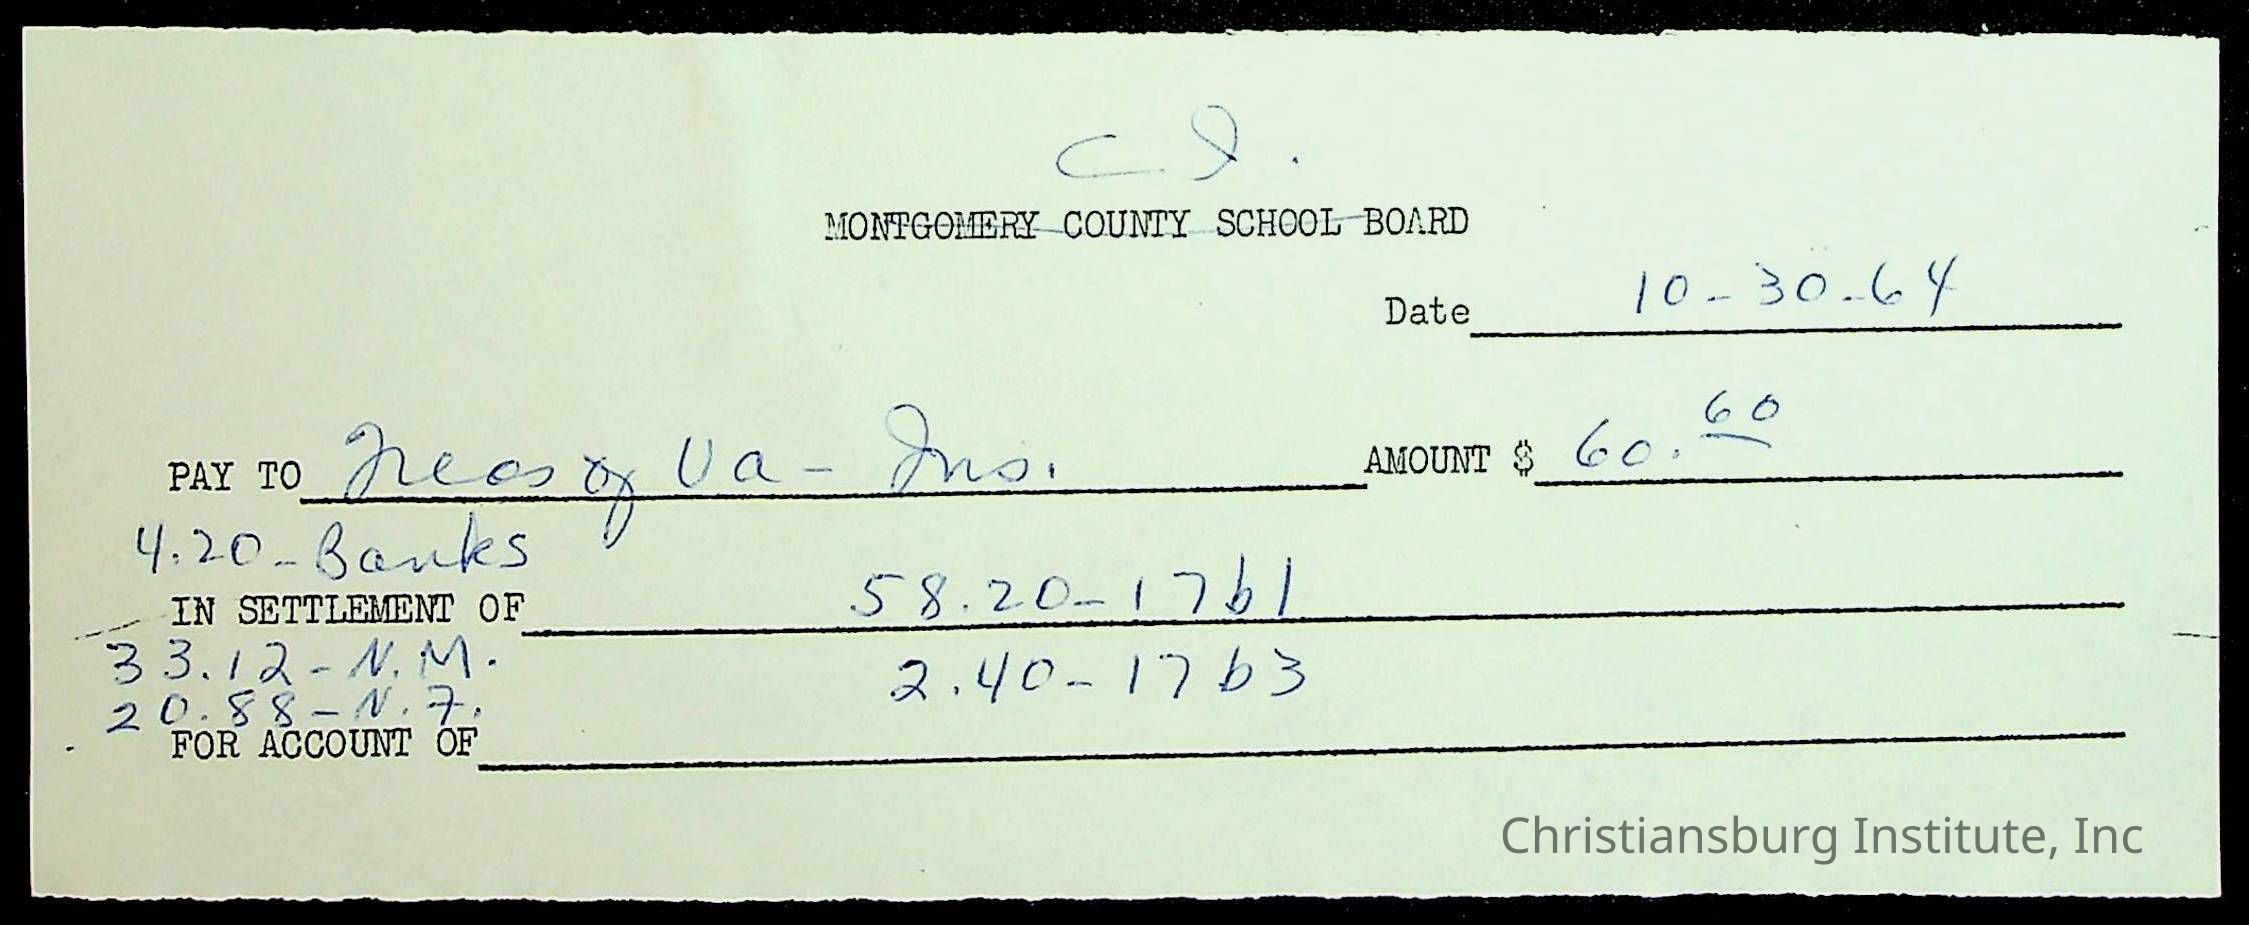 C I.
MONTGOMERY COUNTY SCHOOL BOARD
Date 10-30-64
PAY TO Treas of Va - Ins. AMOUNT $ 60.60
4.20 - Banks
IN SETTLEMENT OF 58.20 - 17b1
33.12 - N.M. 2.40 - 17b3
20.88 - N.F.
FOR ACCOUNT OF
Christiansburg Institute, Inc